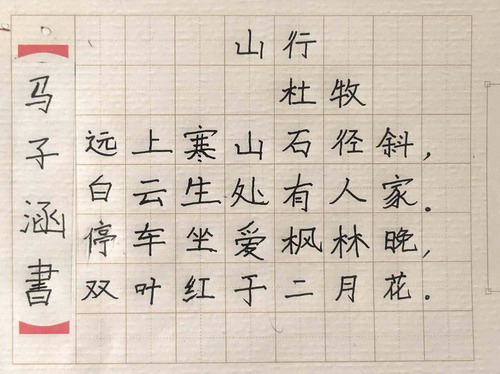 山行
杜牧
远上寒山石径斜，
白云生处有人家．
停车坐爱枫林晚，
双叶红于二月花．
马子涵書